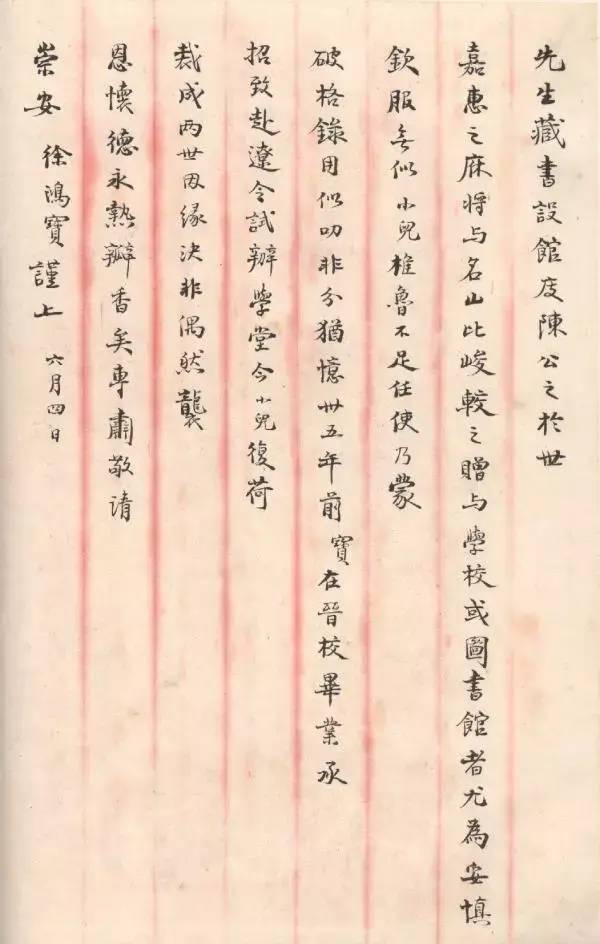 先生藏書設館庋陳公之於世
嘉惠之庥將与名山比峻較之贈与學校或圖書館者尤為安慎
欽服無似小兒椎魯不足任使乃蒙
破格錄用似叨非分猶憶卅五年前寶在晉校畢業承
招致赴遼令試辦學堂今小兒復荷
裁成两世因緣決非偶然襲
恩懷德永爇瓣香矣專肅敬請
崇安 徐鴻寶謹上 六月四日